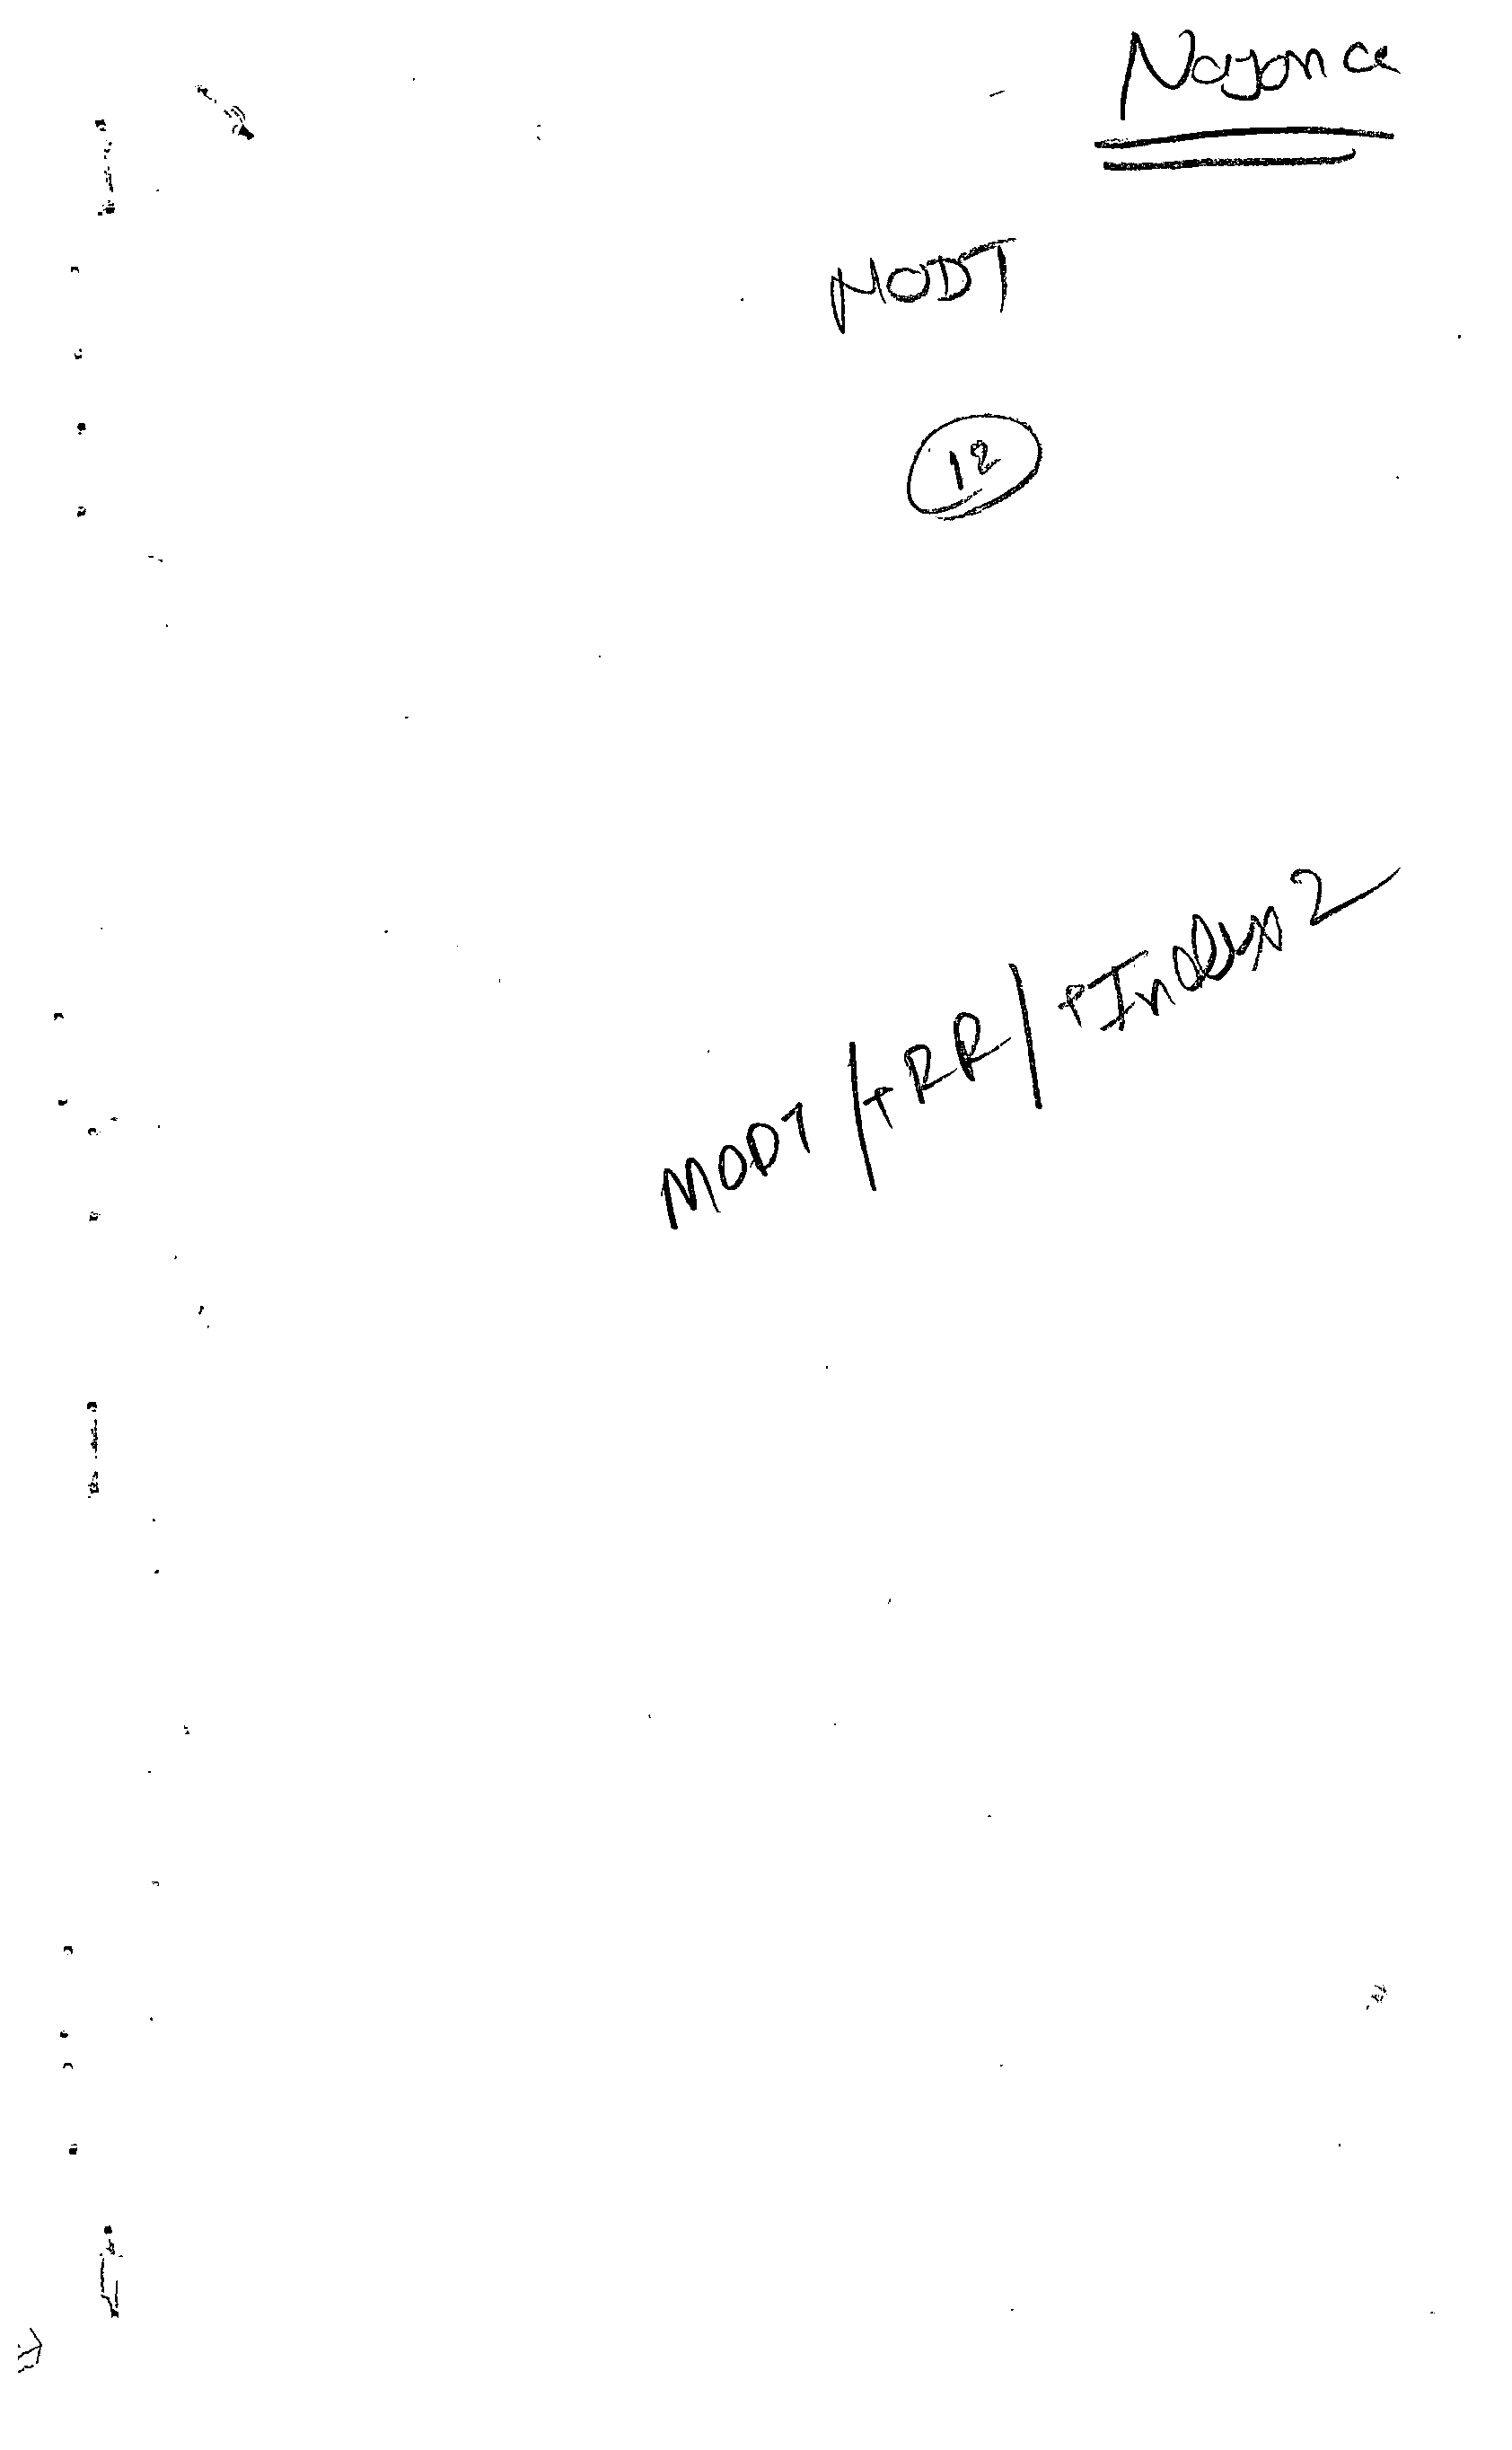 Nayonce
MODT
12
MODT /+RR/ +Index2